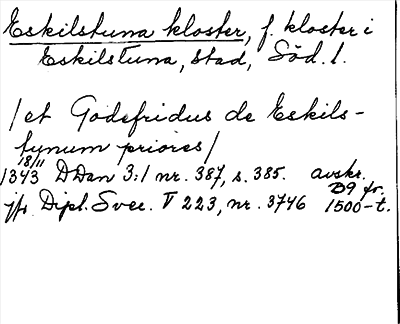 Eskilstuna kloster, f. kloster i
Eskilstuna, stad, Söd. l.
/et Godefridus de Eskils-
tynum priores/
18/11
1343 DDan 3:1 nr. 387, s. 385. avskr.
B9 fr.
jfr Dipl. Svec. V 223, nr. 3746 1500-t.